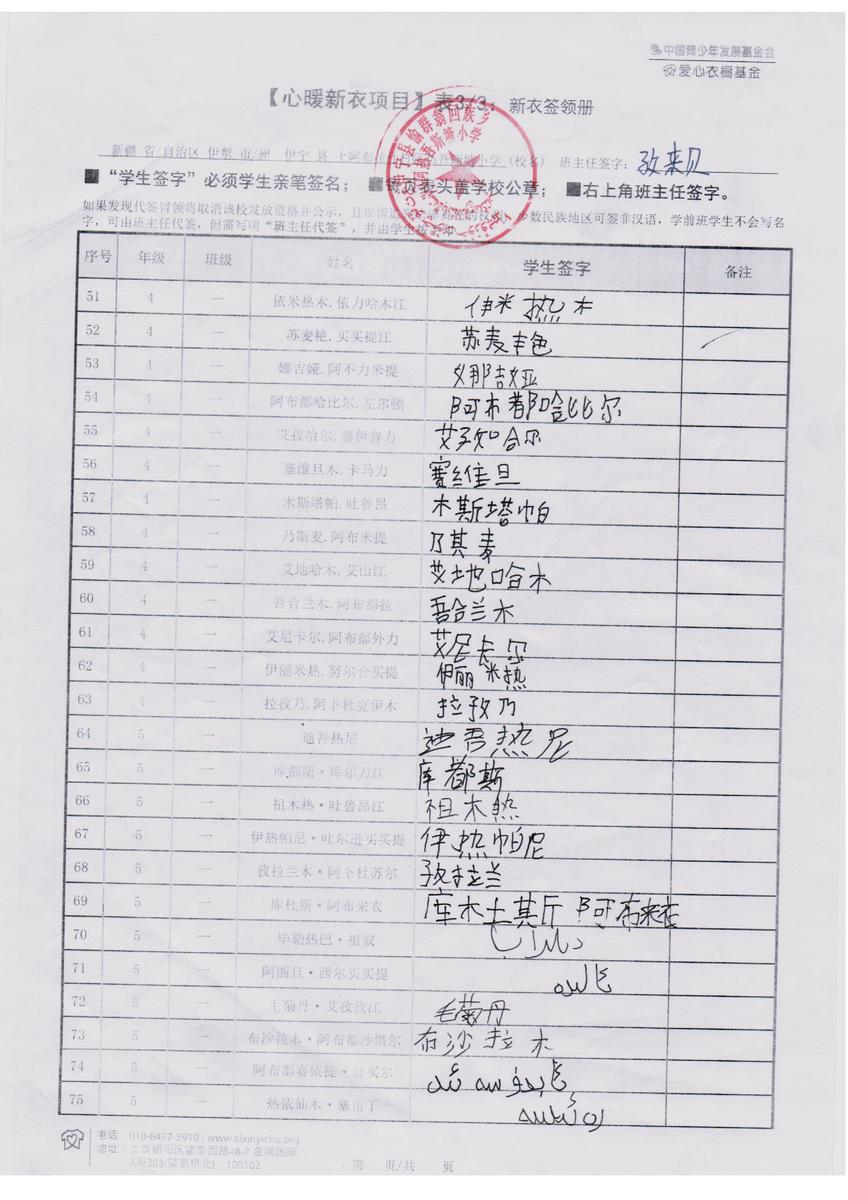 中国青少年发展基金会
爱心衣橱基金
【心暖新衣项目】表3/3：新衣签领册
新疆 省/自治区 伊犁 市/州 伊宁 县 (校名) 班主任签字：孜来贝
■“学生签字”必须学生亲笔签名；■每页表头盖学校公章；■右上角班主任签字。
如果发现代签冒领将取消该校发放资格并公示，且保留 少数民族地区可签非汉语，学前班学生不会写名
字，可由班主任代签，但需写明“班主任代签”，并由学生
序号 年级 班级 姓名 学生签字 备注
51 4 一 依米热木.依力哈木江 伊米热木
52 4 一 苏麦艳.买买提江 苏麦丰色
53 4 一 娜吉娅.阿不力米提 娜吉娅
54 4 一 阿布都哈比尔.左尔顿 阿木都哈比尔
55 4 一 艾孜哈尔.赛伊普力 艾孜哈尔
56 4 一 塞维旦木.卡马力 赛维旦
57 4 一 木斯塔帕.吐鲁昂 木斯塔帕
58 4 一 乃斯麦.阿布米提 乃其麦
59 4 一 艾地哈木.艾山江 艾地哈木
60 4 一 吾合兰木.阿布都拉 吾合兰木
61 4 一 艾尼卡尔.阿布都外力 艾尼卡尔
62 4 一 伊丽米热.努尔合买提 伊丽米热
63 4 一 拉孜乃.阿卜杜克伊木 拉孜乃
64 5 一 迪吾热尼 迪吾热尼
65 5 一 库都斯·库尔万江 库都斯
66 5 一 祖木热·吐鲁昂江 祖木热
67 5 一 伊热帕尼·吐尔逊买买提 伊热帕尼
68 5 一 孜拉兰木·阿卜杜苏尔 孜拉兰
69 5 一 库杜斯·阿布来衣 库木土其斤 阿布来在
70 5 一 毕勒热巴·祖奴
71 5 一 阿丽旦·西尔买买提
72 5 一 毛菊丹·艾孜孜江 毛菊丹
73 5 一 布沙拉木·阿布都沙塔尔 布沙拉木
74 5 一 阿布都赛依提·台买尔
75 5 一 热依仙木·塞甫丁
电话：010-8437-5910 | www.aixinyichu.org
地址：北京朝阳区望京西路48-7 金隅国际
A座303(望京桥北)·100102
第 页/共 页